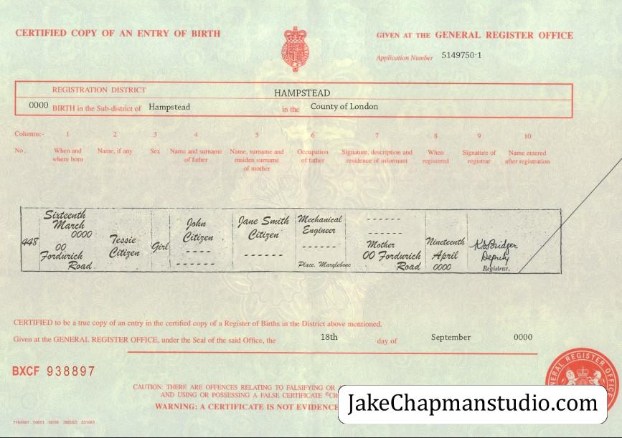 CERTIFIED COPY OF AN ENTRY OF BIRTH
GIVEN AT THE GENERAL REGISTER OFFICE
Application Number 5149750-1
REGISTRATION DISTRICT HAMPSTEAD
0000 BIRTH in the Sub-district of Hampstead in the County of London
Columns:- 1 2 3 4 5 6 7 8 9 10
No. When and where born Name, if any Sex Name and surname of father Name, surname and maiden surname of mother Occupation of father Signature, description and residence of informant When registered Signature of registrar Name entered after registration
448 Sixteenth March 0000 00 Fordurich Road Tessie Citizen Girl John Citizen Jane Smith Citizen Mechanical Engineer Place, Marylebone Mother 00 Fordurich Road Nineteenth April 0000 Deputy Registrar
CERTIFIED to be a true copy of an entry in the certified copy of a Register of Births in the District above mentioned.
Given at the GENERAL REGISTER OFFICE, under the Seal of the said Office, the 18th day of September 0000
BXCF 938897
CAUTION: THERE ARE OFFENCES RELATING TO FALSIFYING OR
AND USING OR POSSESSING A FALSE CERTIFICATE
WARNING: A CERTIFICATE IS NOT EVIDENCE
JakeChapmanstudio.com